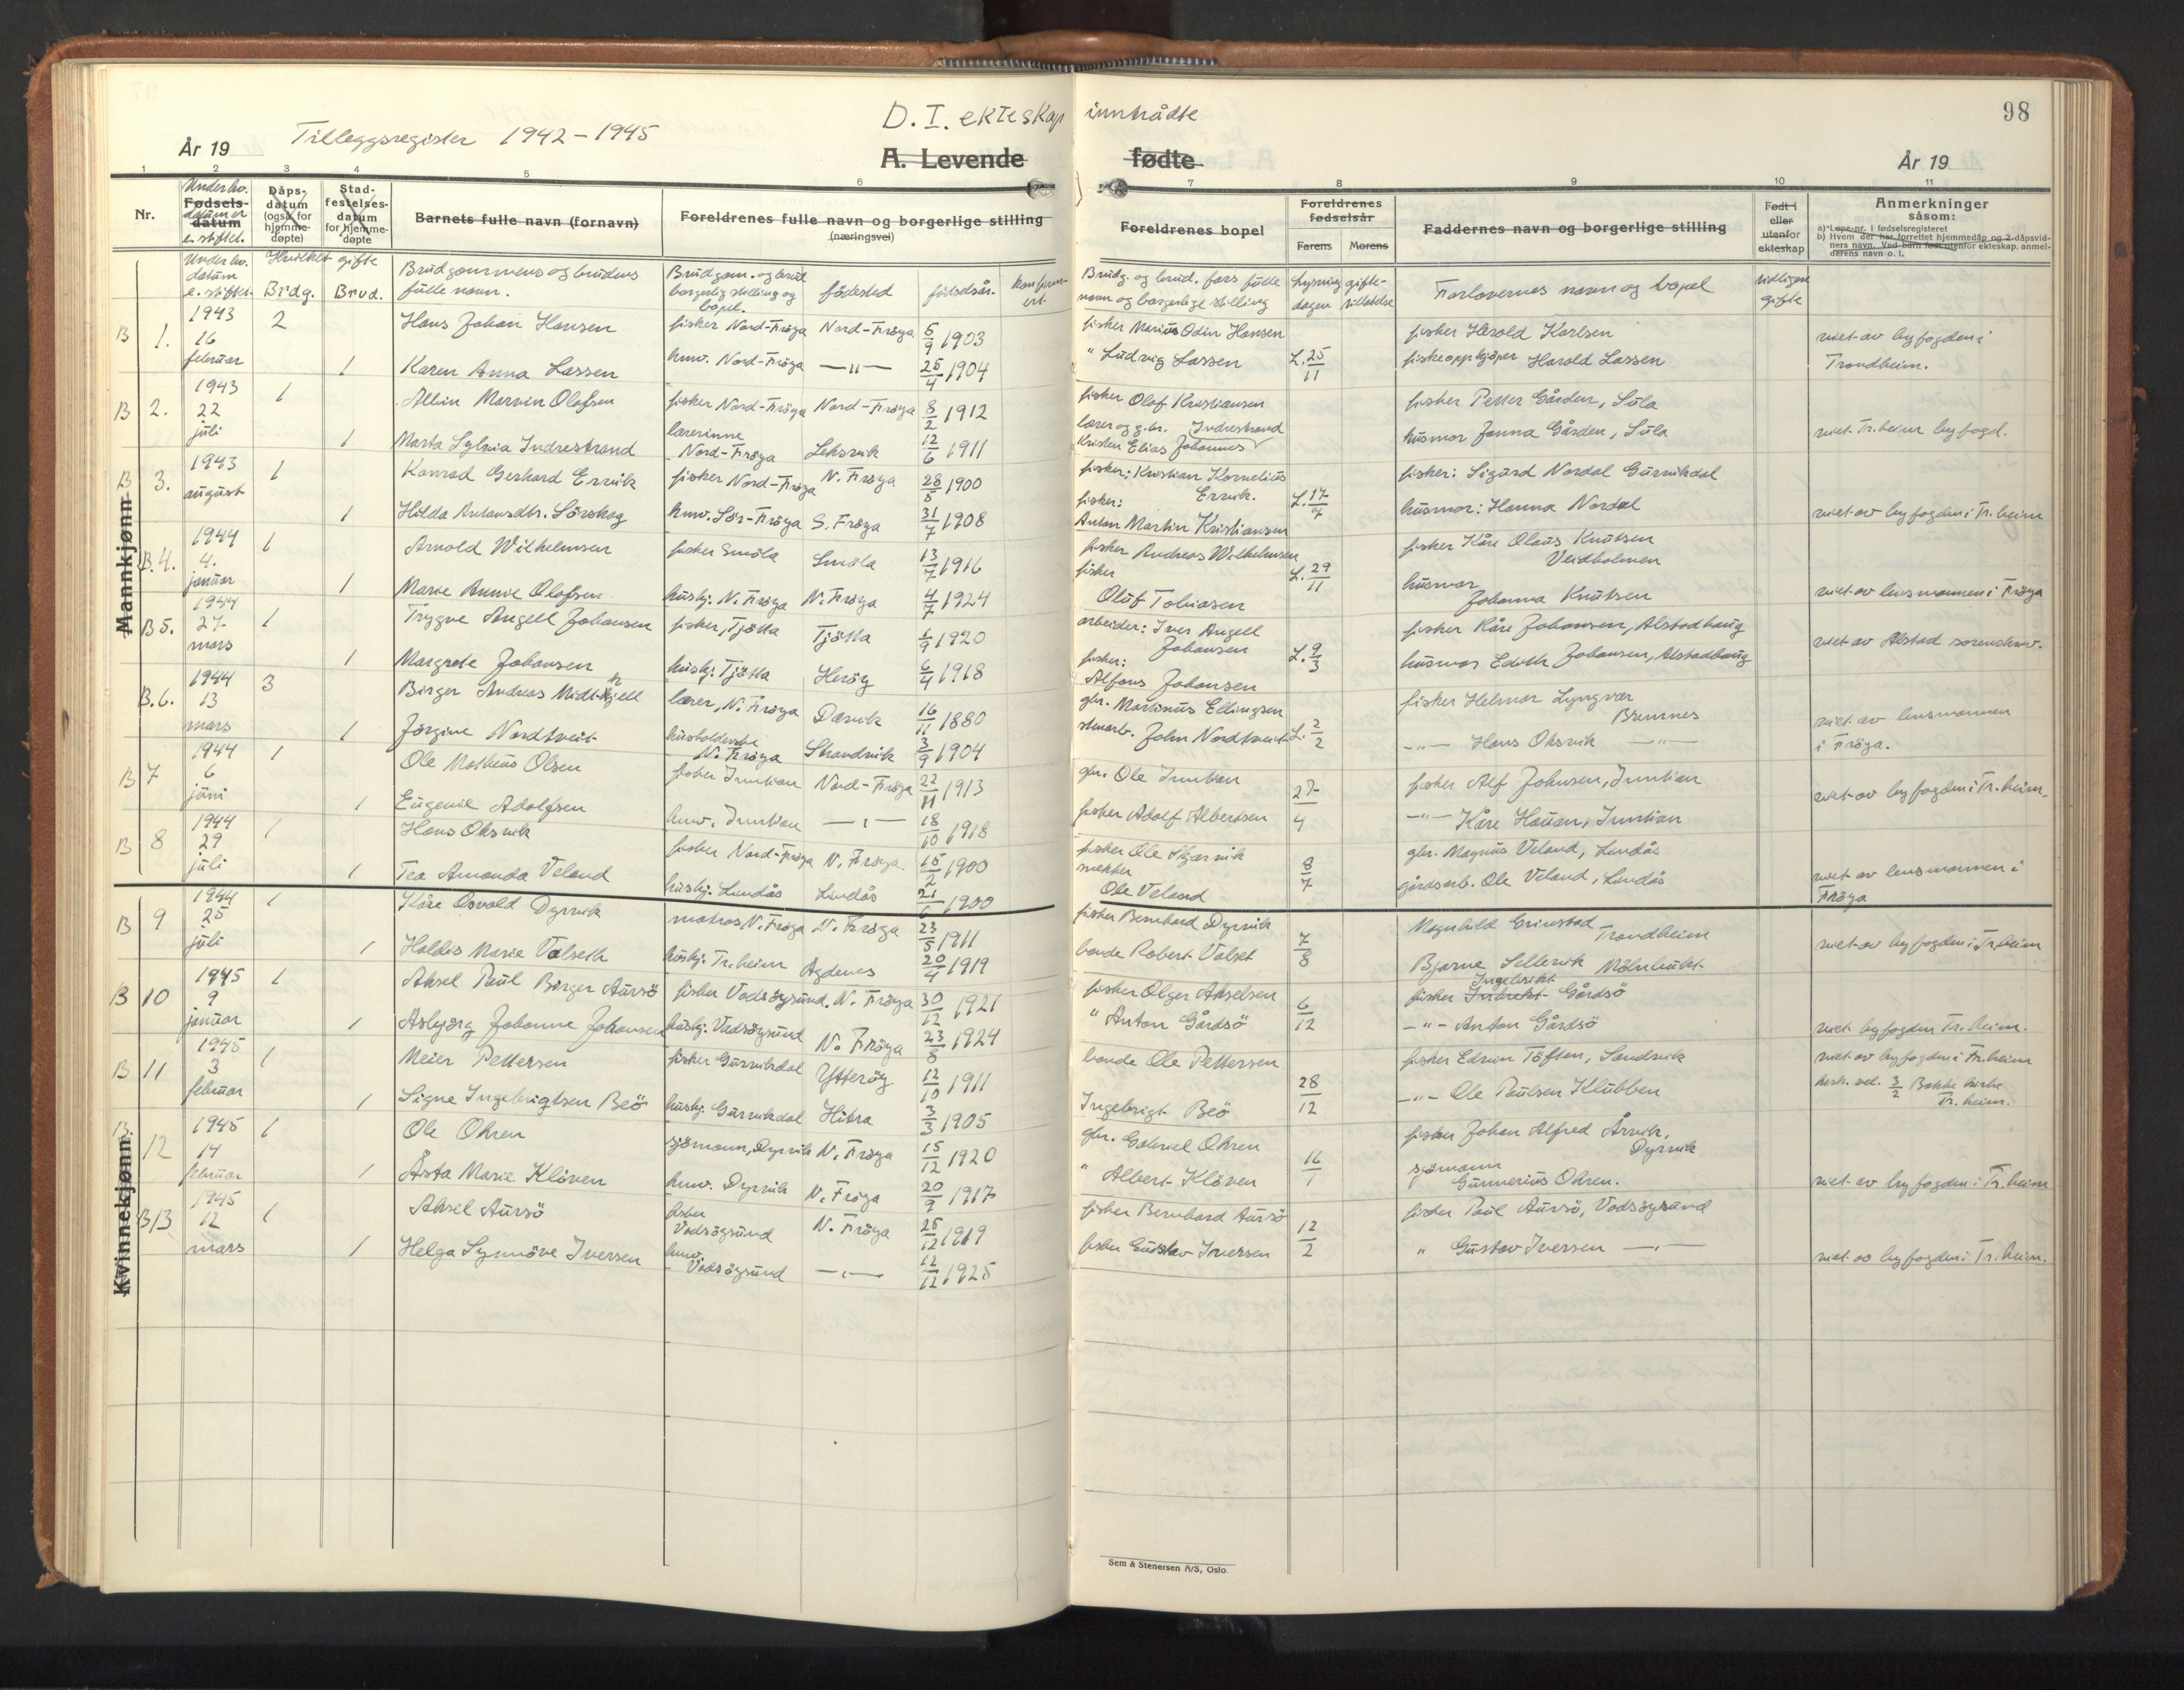 98
D. I. ekteskap inntrådte
Tilleggsregister 1942-1945
År 19
A. Levende fødte
År 19
1 2 3 4 5 6 7 8 9 10 11
Nr.
Fødselsdatum
Dåpsdatum (også for hjemmedøpte)
Stadfestelsesdatum for hjemmedøpte
Barnets fulle navn (fornavn)
Foreldrenes fulle navn og borgerlige stilling (næringsvei)
Foreldrenes bopel
Foreldrenes fødselsår
Farens Morens
Faddernes navn og borgerlige stilling
Født i eller utenfor ekteskap
Anmerkninger såsom:
a) Løpe-nr. i fødselsregisteret
b) Hvem der har forrettet hjemmedåp og 2 dåpsvidners navn. Ved barn født utenfor ekteskap, anmelderens navn o. l.
datum e. stiftet. Hvilket gifte Brdg. Brud. Brudgommens og brudens fulle navn. Brudgom. og brud borgerlig stilling og bopel. fødested fødselsår. Brudg. og brud. fars fulle navn og borgerlige stilling lysning dagen gifte- tillatelse Forlovernes navn og bopel tidligere gifte
Mannkjønn
B 1. 1943 16 februar 2 Hans Johan Hansen fisker Nord-Fröya Nord-Fröya 5/9 1903 fisker Marius Odin Hansen fisker Harold Karlsen viet av byfogden i
1 Karen Anna Lassen hmv. Nord-Fröya —"— 25/4 1904 " Ludvig Lassen L. 25/11 fiskeoppkjöper Harold Lassen Trondheim.
B 2. 1943 22 juli 1 Allin Marvin Olafsen fisker Nord-Fröya Nord-Fröya 8/2 1912 fisker Olaf Kristiansen fisker Petter Gården, Sula
1 Marta Sylvia Indrestrand lærerinne Nord-Fröya Leksvik 12/6 1911 lærer og g.br. Indrestrand Kristen Elias Johannes husmor Janna Gården, Sula viet Tr.heim byfogd.
B 3. 1943 august 1 Konrad Gerhard Ervik fisker Nord-Fröya N. Fröya 28/5 1900 fisker: Kristian Kornelius Ervik. fisker: Sigurd Nordal Gurvikdal
1 Hilda Antonsdtr. Sörskag hmv. Sör-Fröya S. Fröya 31/7 1908 fisker: Anton Martin Kristiansen L. 17/7 husmor: Hanna Nordal viet av byfogden i Tr.heim
B. 4. 1944 4. januar 1 Arnold Wilhelmsen fisker Smöla Smöla 13/7 1916 fisker Andreas Wilhelmsen fisker Kåre Olaus Knutsen Veidholmen
1 Marie Annie Olafsen huskj. N. Fröya N. Fröya 4/7 1924 fisker Oluf Tobiasen L. 29/11 husmor Johanna Knutsen viet av lensmannen i Fröya
B 5. 1944 27 mars 1 Trygve Angell Johansen fisker, Tjötta Tjötta 1/9 1920 arbeider: Iver Angell Johansen fisker Kåre Johansen, Alstadhaug
1 Margrete Johansen huskj. Tjötta Heröy 6/4 1918 fisker: Alfons Johansen L. 9/3 husmor Edith Johansen, Alstadhaug viet av Alstad sorenskriv.
B. 6. 1944 13 mars 3 Birger Andreas Midtkjell lærer, N. Fröya 16/11 1880 gbr. Martinus Ellingsen fisker Helmar Lyngvær Bremnes viet av lensmannen
1 Jörgine Nordtveit husholderske N. Fröya Strandvik 3/9 1904 John Nordtveit L. 2/2 —"— Hans Oksvik —"— i Fröya.
B 7 1944 6 juni 1 Ole Matheus Olsen fisker Inntian Nord-Fröya 22/11 1913 gbr. Ole Inntian fisker Alf Johnsen, Inntian
1 Eugenie Adolfsen hmv. Inntian —"— 18/10 1918 fisker Adolf Albertsen 27/4 —"— Kåre Hauan, Inntian viet av byfogden i Tr.heim.
B 8 1944 29 juli 1 Hans Oksvik fisker Nord-Fröya N. Fröya 15/2 1900 fisker Ole Skjærvik gbr. Magnus Veland, Lindås
1 Tea Amanda Veland huskj. Lindås Lindås 21/6 1900 Ole Veland 8/7 gårdsarb. Ole Veland, Lindås viet av lensmannen i Fröya
Kvinnekjønn
B 9 1944 25 juli 1 Kåre Osvald Dyrvik matros N. Fröya N. Fröya 23/5 1911 fisker Bernhard Dyrvik Magnhild Grinstad Trondheim
1 Haldis Marie Valseth huskj. Tr.heim Agdenes 20/4 1919 bonde Robert Valset 7/8 Bjarne viet av byfogden i Tr.heim
B 10 1945 9 januar 1 Aksel Paul Birger Aursö fisker Vadsöysund N. Fröya 30/12 1921 fisker Olger Akselsen fisker Ingebrikt Gårdsö
1 Asbjörg Johanne Johansen huskj. Vadsöysund N. Fröya 23/8 1924 " Anton Gårdsö 6/12 —"— Anton Gårdsö viet byfogden Tr.heim.
B 11 1945 3 februar 1 Meier Pettersen fisker Gurvikdal Ytteröy 12/10 1911 bonde Ole Pettersen fisker Edvin Töften, Sandvik viet av byfogden i Tr.heim
1 Signe Ingebrigtsen Beö huskj. Gurvikdal Hitra 3/3 1905 Ingebrigt Beö 28/12 —"— Ole Paulsen Klubben kirk. vel. 3/2 Bakke kirke Tr.heim.
B. 12 1945 14 februar 1 Ole Ohren sjömann, Dyrvik N. Fröya 15/12 1920 gbr. Gabriel Ohren fisker Johan Alfred Årvik, Dyrvik
1 Åsta Marie Klöven hmv. Dyrvik N. Fröya 20/9 1917 " Albert Klöven 16/1 sjömann Gunnerius Ohren. viet av byfogden i Tr.heim
B 13 1945 12 mars 1 Aksel Aursö fisker Vadsöysund N. Fröya 25/12 1919 fisker Bernhard Aursö fisker Paul Aursö, Vadsöysund
1 Helga Synnöve Iversen hmv. Vadsöysund —"— 12/12 1925 fisker Gustav Iversen 12/2 " Gustav Iversen —"— viet av byfogden i Tr.heim.
Sem & Stenersen A/S, Oslo.